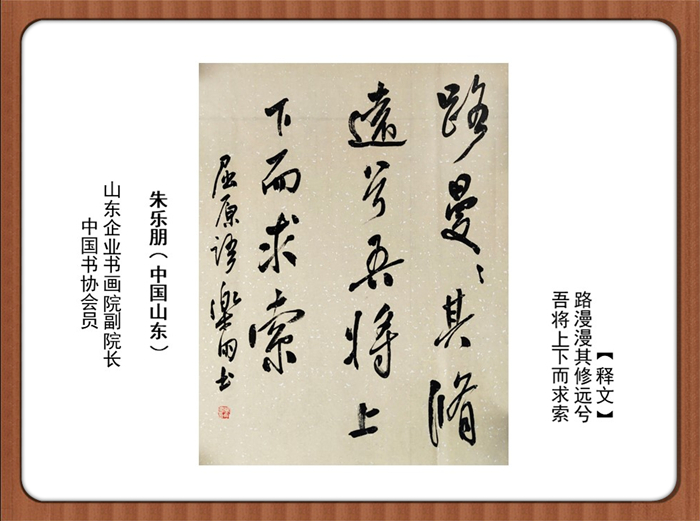 【释文】
路漫漫其修远兮
吾将上下而求索
路曼〻其脩
遠兮吾將上
下而求索
屈原语 樂朋书
朱乐朋（中国山东）
山东企业书画院副院长
中国书协会员